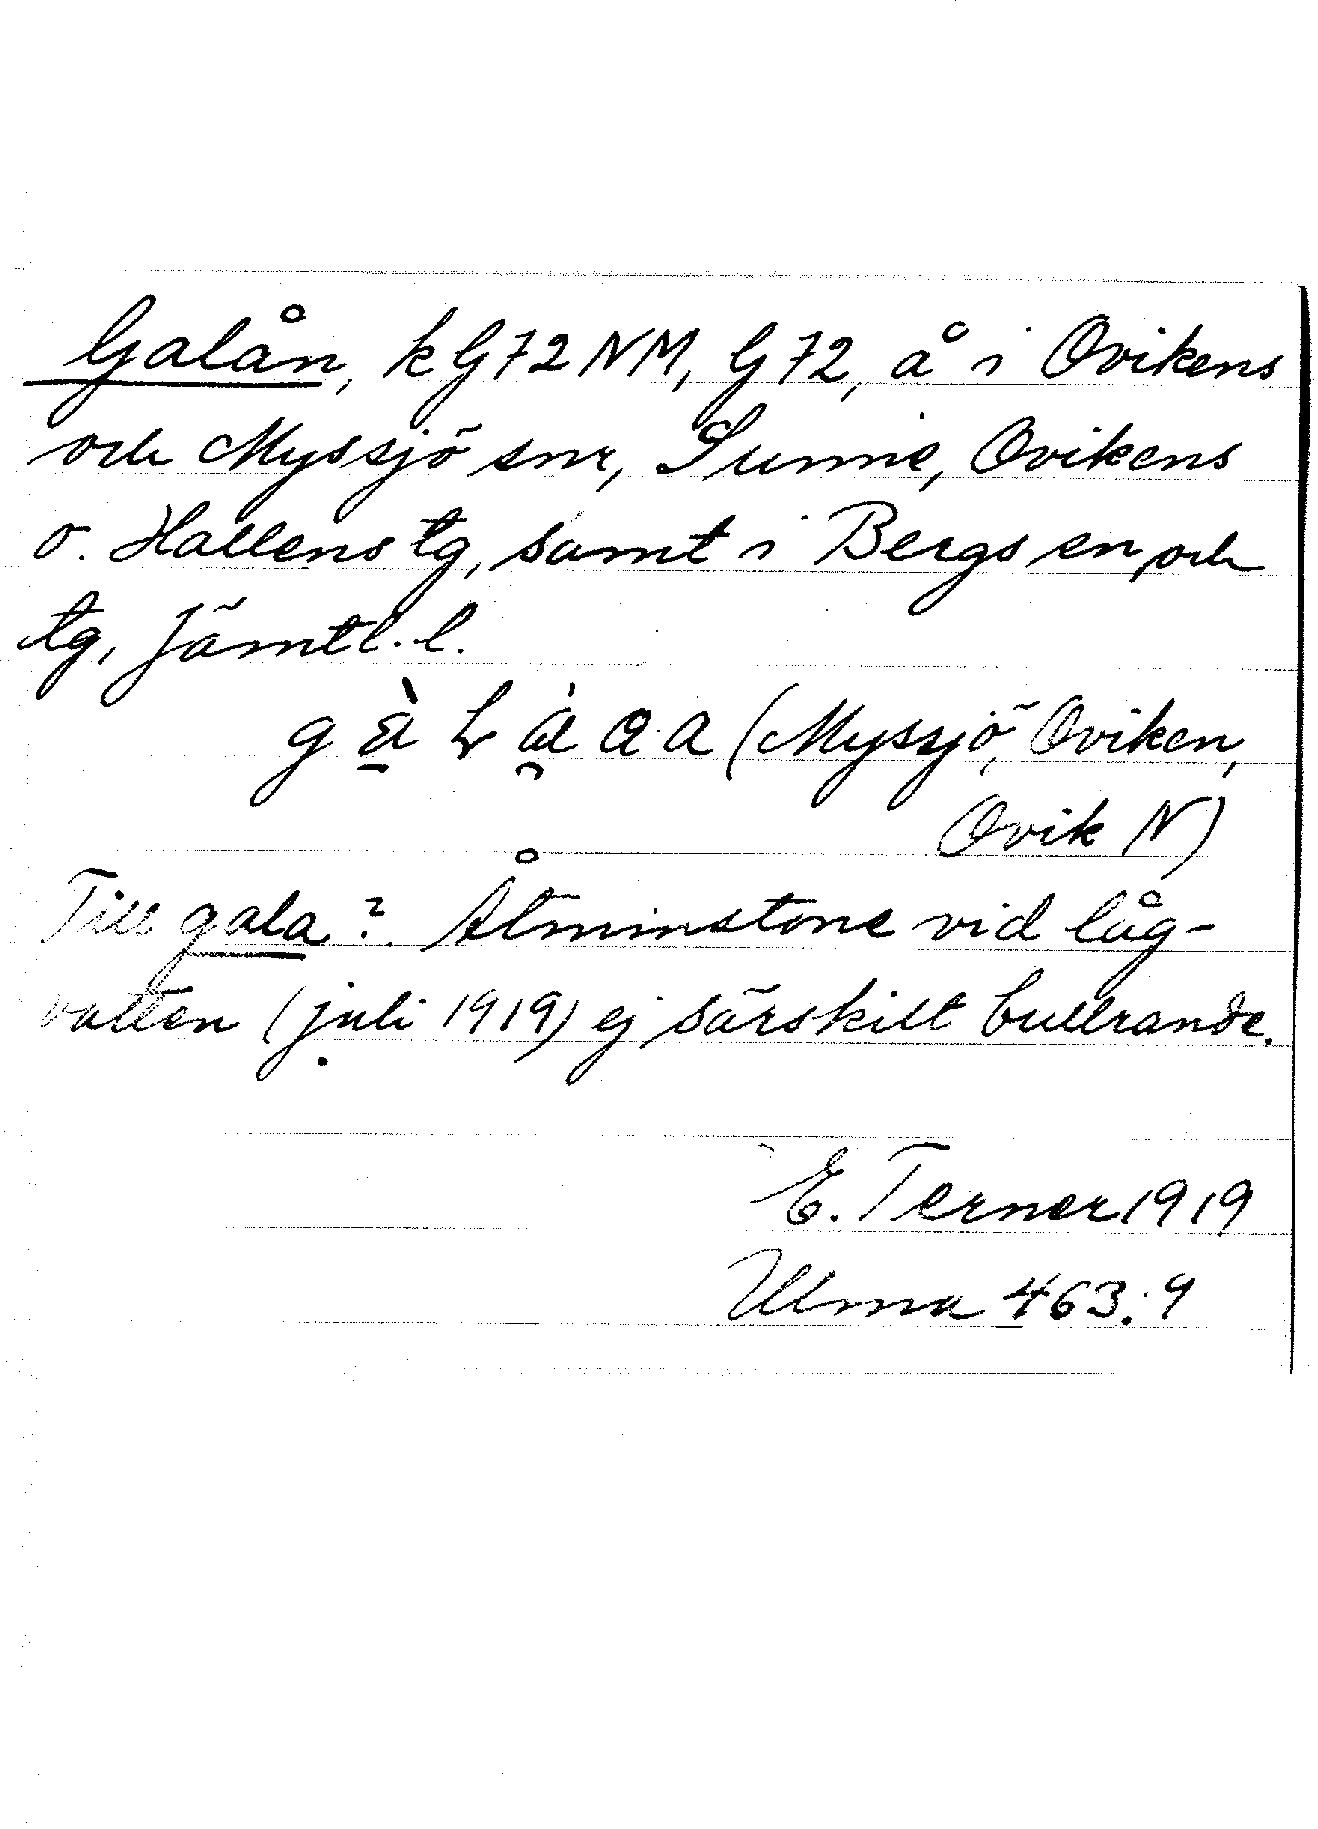 Galån, kG72NM, G72, å i Ovikens
och Myssjö snr, Sunne, Ovikens
o. Hallens tg, samt i Bergs sn och
tg, Jämtl. l.
(Myssjö, Oviken,
Ovik N)
Till gala? Åtminstone vid låg-
vatten (juli 1919) ej särskilt bullrande.
E. Terner 1919
Ulma 463:9